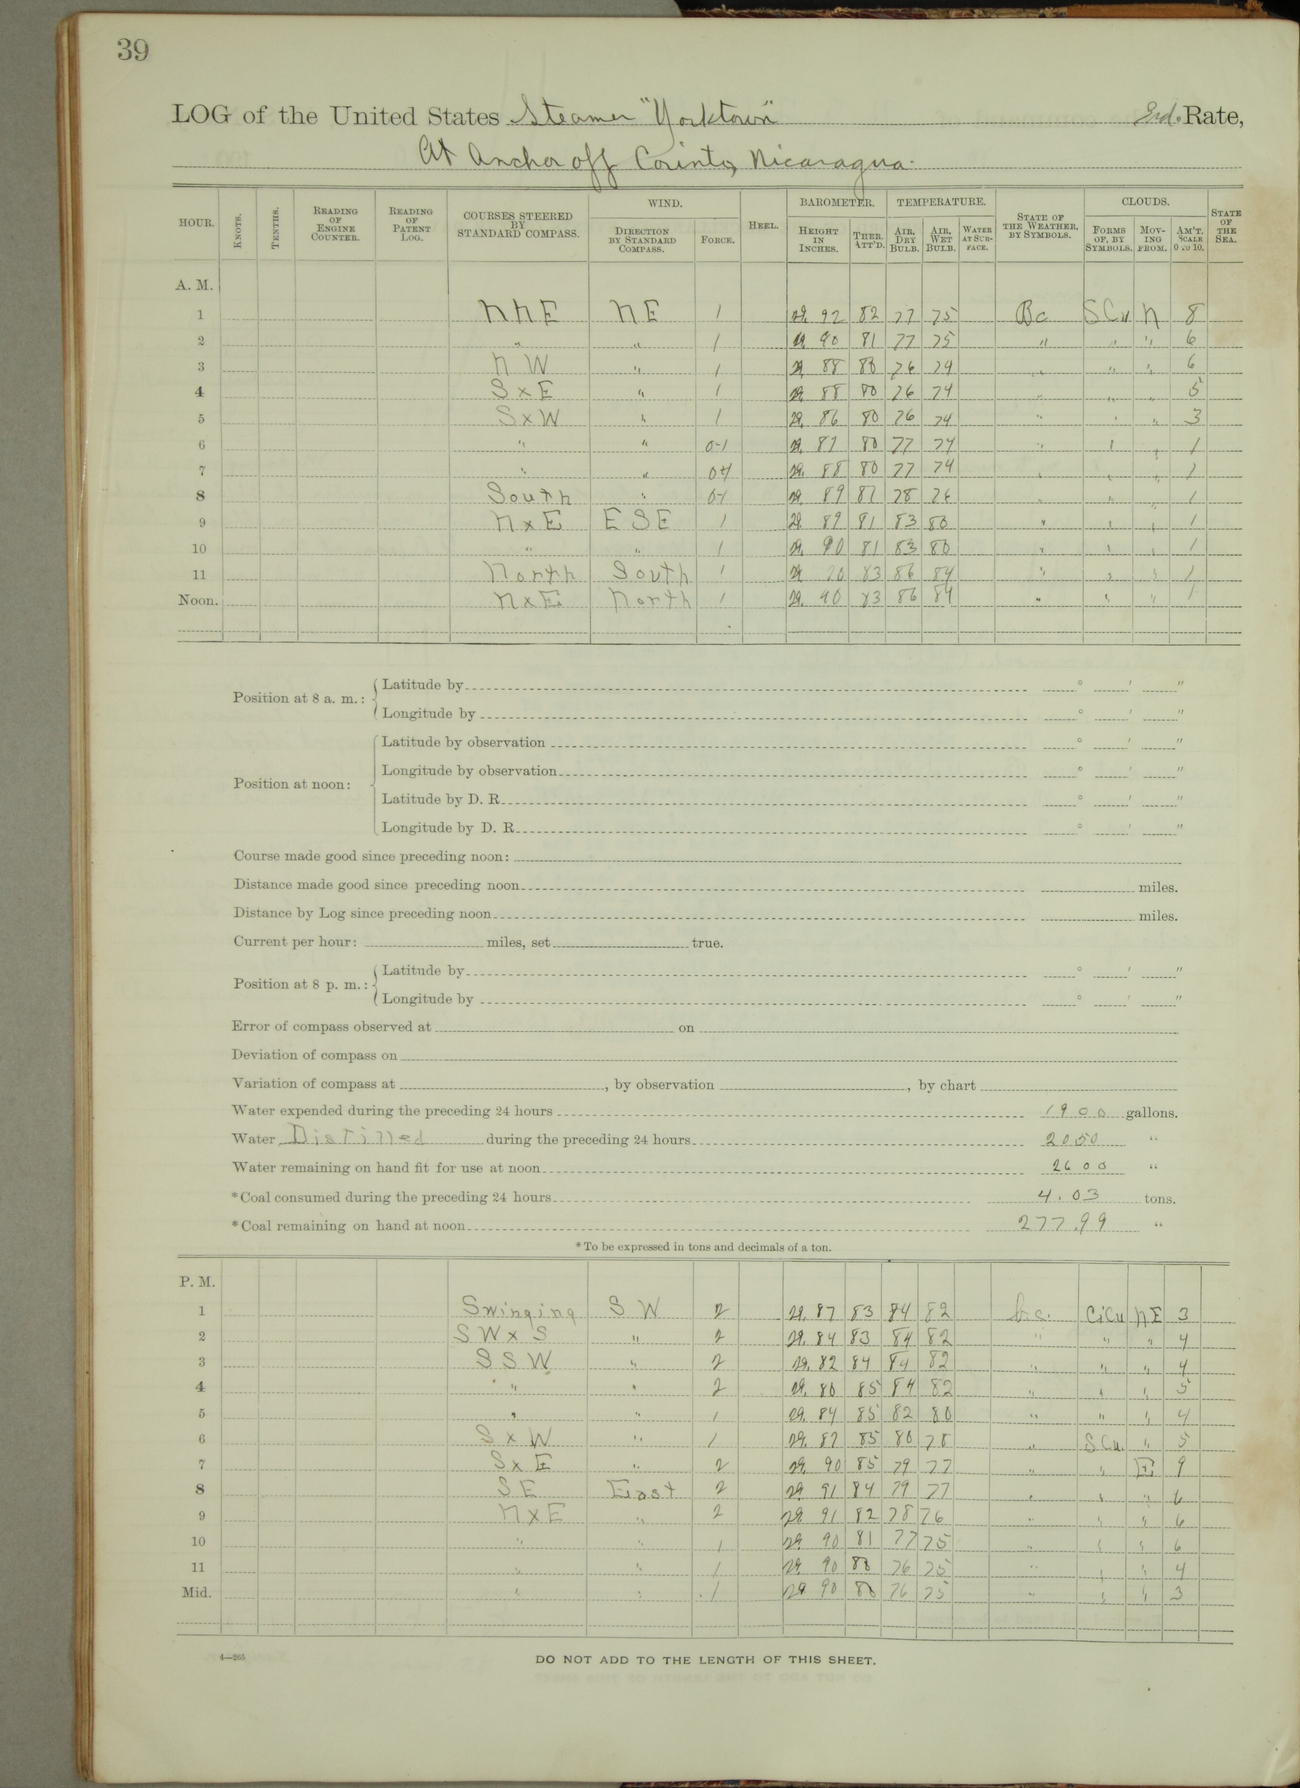 39
LOG of the United States Steamer "Yorktown" 3rd. Rate,
At Anchor off Corinto, Nicaragua.
HOUR. KNOTS. TENTHS. READING OF ENGINE COUNTER. READING OF PATENT LOG. COURSES STEERED BY STANDARD COMPASS. WIND. DIRECTION BY STANDARD COMPASS. FORCE. HEEL. BAROMETER. HEIGHT IN INCHES. THER. ATT'D. TEMPERATURE. AIR, DRY BULB. AIR, WET BULB. WATER AT SURFACE. STATE OF THE WEATHER, BY SYMBOLS. CLOUDS. FORMS OF, BY SYMBOLS. MOVING FROM. AM'T. SCALE 0 TO 10. STATE OF THE SEA.
A. M.
1 NNE NE 1 29. 92 82 77 75 Bc SCu N 8
2 " " 1 29. 90 81 77 75 " " " 6
3 NW " 1 29. 88 80 76 74 " " " 6
4 SxE " 1 29. 88 80 76 74 " " " 5
5 SxW " 1 29. 86 80 76 74 " " " 3
6 " " 0-1 29. 87 80 77 74 " " " 1
7 " " 0-1 29. 88 80 77 74 " " " 1
8 South " 0-1 29. 89 81 78 76 " " " 1
9 NxE ESE 1 29. 89 81 83 80 " " " 1
10 " " 1 29. 90 81 83 80 " " " 1
11 North South 1 29. 83 86 84 " " " 1
Noon. NxE North 1 29. 90 83 86 84 " " " 1
Position at 8 a. m.: Latitude by ° ' "
Longitude by ° ' "
Position at noon: Latitude by observation ° ' "
Longitude by observation ° ' "
Latitude by D. R. ° ' "
Longitude by D. R. ° ' "
Course made good since preceding noon:
Distance made good since preceding noon miles.
Distance by Log since preceding noon miles.
Current per hour: miles, set true.
Position at 8 p. m.: Latitude by ° ' "
Longitude by ° ' "
Error of compass observed at on
Deviation of compass on
Variation of compass at , by observation , by chart
Water expended during the preceding 24 hours 1900 gallons.
Water Distilled during the preceding 24 hours 2050 "
Water remaining on hand fit for use at noon 2600 "
*Coal consumed during the preceding 24 hours 4.03 tons.
*Coal remaining on hand at noon 277.99 "
*To be expressed in tons and decimals of a ton.
P. M.
1 Swinging SW 2 29. 87 83 84 82 b.c. CiCu NE 3
2 SWxS " 2 29. 84 83 84 82 " " " 4
3 SSW " 2 29. 82 84 84 82 " " " 4
4 " " 2 29. 80 85 84 82 " " " 5
5 " " 1 29. 84 85 82 80 " " " 4
6 SxW " 1 29. 87 85 80 78 " SCu " 5
7 SxE " 2 29. 90 85 79 77 " " E 9
8 SE East 2 29. 91 84 79 77 " " " 6
9 NxE " 2 29. 91 82 78 76 " " " 6
10 " " 1 29. 90 81 77 75 " " " 6
11 " " 1 29. 90 80 76 75 " " " 4
Mid. " " 1 29. 90 80 76 75 " " " 3
4—265
DO NOT ADD TO THE LENGTH OF THIS SHEET.